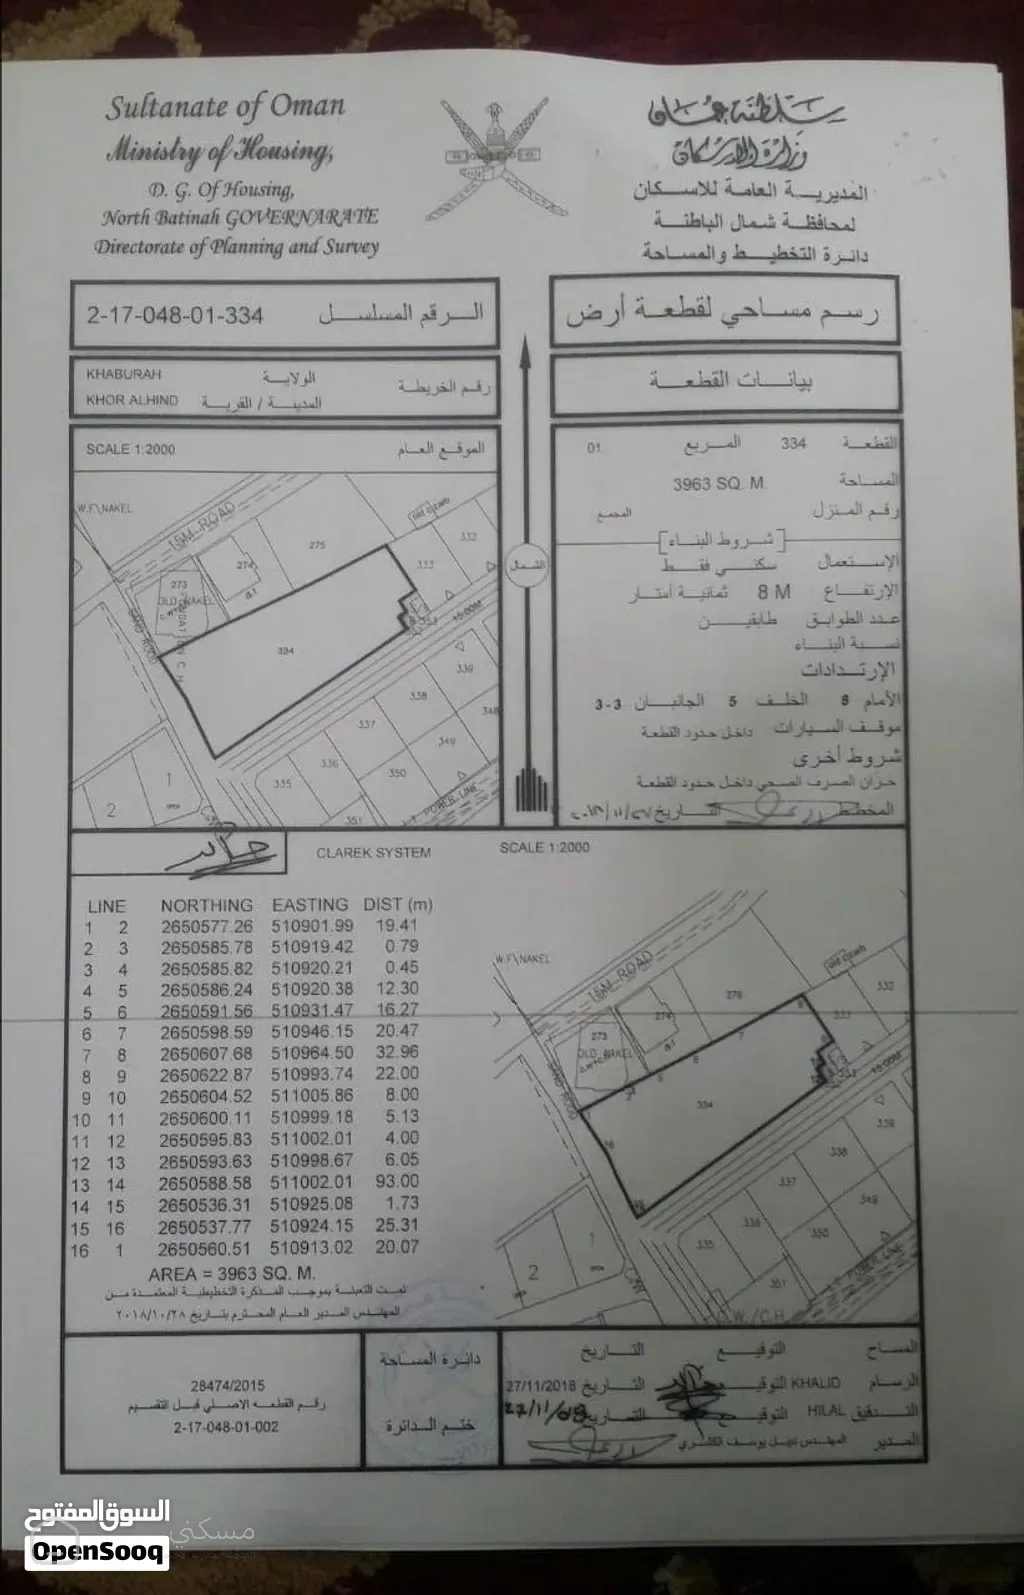 Sultanate of Oman
Ministry of Housing,
D. G. Of Housing,
North Batinah GOVERNARATE
Directorate of Planning and Survey
سلطنة عمان
وزارة الإسكان
المديرية العامة للاسكان
لمحافظة شمال الباطنة
دائرة التخطيط والمساحة
2-17-048-01-334 الرقم المسلسل
رسم مساحي لقطعة أرض
KHABURAH الولاية
KHOR ALHIND المدينة / القرية
رقم الخريطة
بيانات القطعة
SCALE 1:2000 الموقع العام
القطعة 334 المربع 01
المساحة 3963 SQ. M.
رقم المنزل المجمع
شروط البناء
الإستعمال سكني فقط
الإرتفاع 8 M ثمانية أمتار
عدد الطوابق طابقين
نسبة البناء
الإرتدادات
الأمام 6 الخلف 5 الجانبان 3-3
موقف السيارات داخل حدود القطعة
شروط أخرى
خزان الصرف الصحي داخل حدود القطعة
المخطط التاريخ ٢٠١٨/١١/٢٧
الشمال
W.F\NAKEL
15M ROAD
275
274
273
OLD NAKEL
334
333
332
15.00M
339
338
337
336
335
348
349
350
351
1
2
POWER LINE
CLAREK SYSTEM
SCALE 1:2000
LINE NORTHING EASTING DIST (m)
1 2 2650577.26 510901.99 19.41
2 3 2650585.78 510919.42 0.79
3 4 2650585.82 510920.21 0.45
4 5 2650586.24 510920.38 12.30
5 6 2650591.56 510931.47 16.27
6 7 2650598.59 510946.15 20.47
7 8 2650607.68 510964.50 32.96
8 9 2650622.87 510993.74 22.00
9 10 2650604.52 511005.86 8.00
10 11 2650600.11 510999.18 5.13
11 12 2650595.83 511002.01 4.00
12 13 2650593.63 510998.67 6.05
13 14 2650588.58 511002.01 93.00
14 15 2650536.31 510925.08 1.73
15 16 2650537.77 510924.15 25.31
16 1 2650560.51 510913.02 20.07
AREA = 3963 SQ. M.
تمت التعبئة بموجب المذكرة التخطيطية المعتمدة من
المهندس المدير العام المحترم بتاريخ ٢٠١٨/١٠/٢٨
W.F\NAKEL
15M ROAD
276
274
273
OLD NAKEL
334
333
332
15.00M
339
338
337
336
335
349
350
351
1
2
POWER LINE
C.W./C.H
28474/2015
رقم القطعه الاصلي قبل التقسيم
2-17-048-01-002
دائرة المساحة
ختم الدائرة
المساح التوقيع التاريخ
الرسام KHALID التوقيع التاريخ 27/11/2018
التدقيق HILAL التوقيع التاريخ
المدير المهندس نبيل يوسف
السوق المفتوح
OpenSooq
مسكني